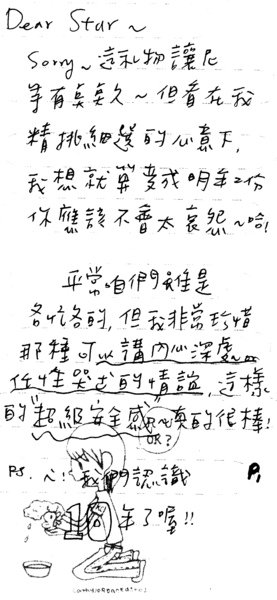 Dear Star～
Sorry～這礼物讓尼
等有夠久～但看在我
精挑細選的心意下,
我想就算變成明年2份
你應該不會太哀怨～哈!
平常咱們雖是
各忙各的,但我非常珍惜
那種可以講內心深處～
任性哭去的情誼,這樣
的"超級安全感" 真的很棒!
OR?
P.S. 心!我們認識
年了喔!!